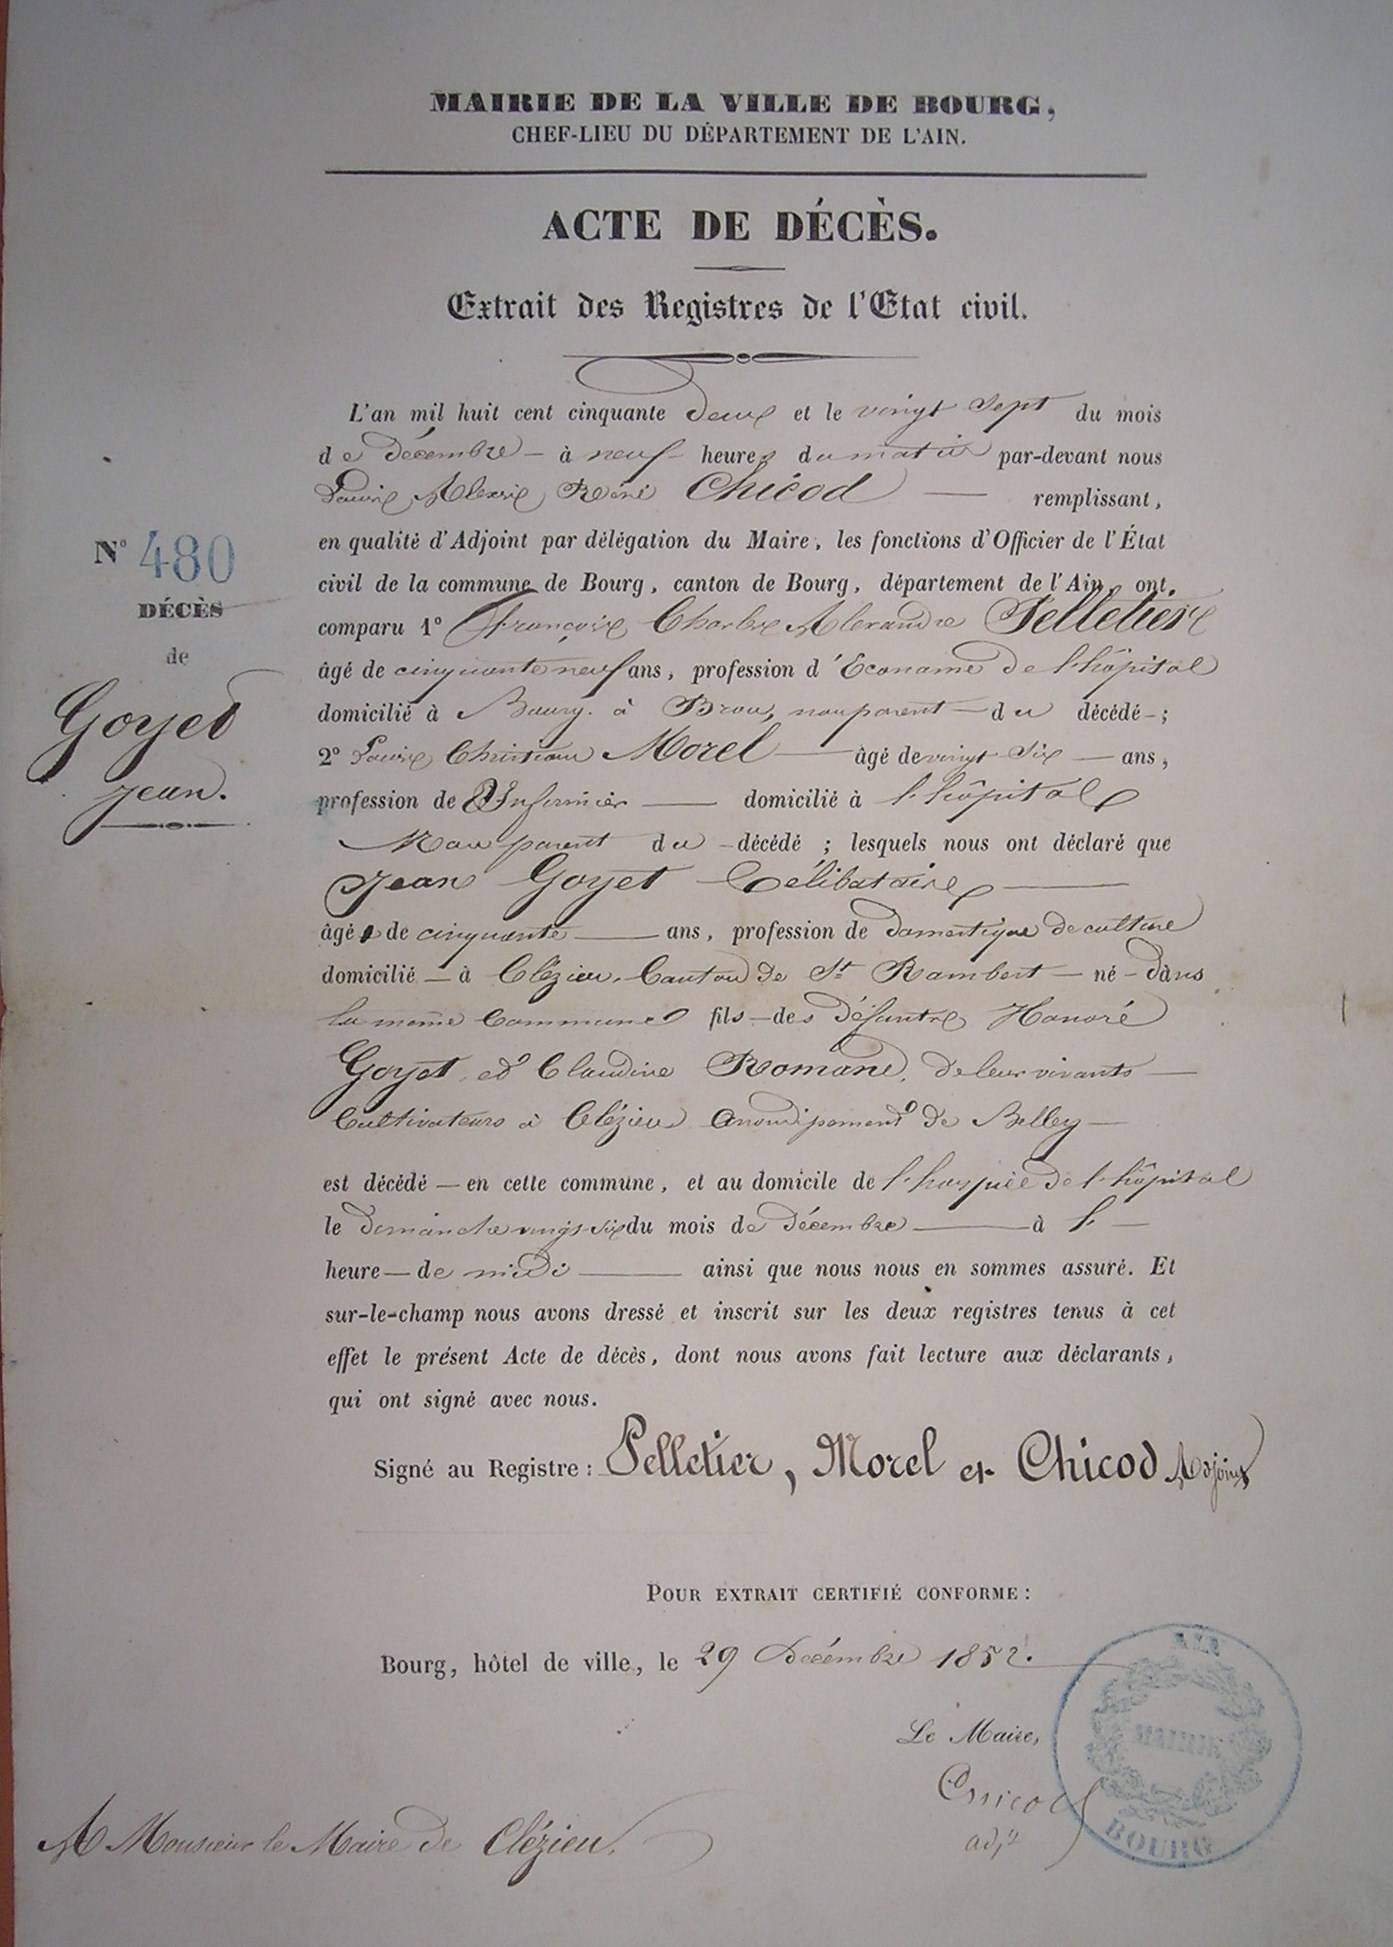 MAIRIE DE LA VILLE DE BOURG,
CHEF-LIEU DU DÉPARTEMENT DE L'AIN.
ACTE DE DÉCÈS.
Extrait des Registres de l'Etat civil.
L'an mil huit cent cinquante deux et le vingt sept du mois
de décembre — à neuf heures du matin par-devant nous
Louis Alexis René Chicod — remplissant,
en qualité d'Adjoint par délégation du Maire, les fonctions d'Officier de l'État
civil de la commune de Bourg, canton de Bourg, département de l'Ain, ont
comparu 1° François Charles Alexandre Pelletier
âgé de cinquante neuf ans, profession d'Econome de l'hôpital
domicilié à Bourg à Brou, non parent — du décédé — ;
2° Louis Christian Morel — âgé de vingt six — ans,
profession de Infirmier — domicilié à l'hôpital
Non parent du — décédé ; lesquels nous ont déclaré que
Jean Goyet Célibataire —
âgé de cinquante — ans, profession de domestique de culture
domicilié — à Clézieu, Canton de St Rambert — né — dans
la même Commune fils — des défunts Honoré
Goyet et Claudine Romand, de leur vivants —
Cultivateurs à Clézieu arrondissement de Belley —
est décédé — en cette commune, et au domicile de l'hospice de l'hôpital
le dimanche vingt-six du mois de décembre — à l' —
heure — de midi — ainsi que nous nous en sommes assuré. Et
sur-le-champ nous avons dressé et inscrit sur les deux registres tenus à cet
effet le présent Acte de décès, dont nous avons fait lecture aux déclarants,
qui ont signé avec nous.
Signé au Registre : Pelletier, Morel et Chicod Adjoint
N° 480
DÉCÈS
de
Goyet
Jean.
POUR EXTRAIT CERTIFIÉ CONFORME :
Bourg, hôtel de ville, le 29 Décembre 1852.
Le Maire,
Chicod
adjt
AIN
MAIRIE
BOURG
A Monsieur le Maire de Clézieu.